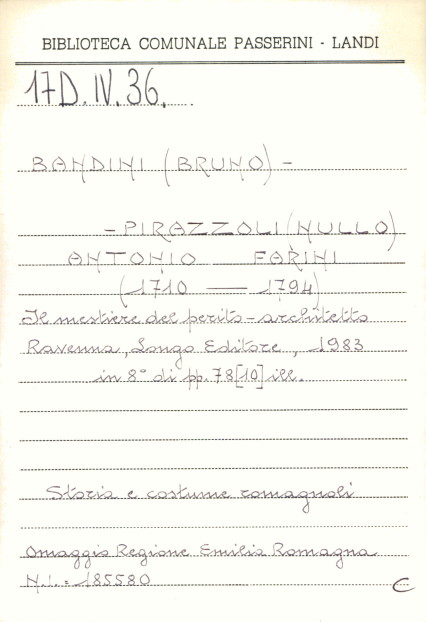 BIBLIOTECA COMUNALE PASSERINI - LANDI
17D.IV.36.
BANDINI (BRUNO) -
- PIRAZZOLI (NULLO)
ANTONIO FARINI
(1710 — 1794)
Il mestiere del perito-architetto
Ravenna, Longo Editore, 1983
in 8° di pp. 78[10] ill.
Storia e costume romagnoli
Omaggio Regione Emilia Romagna
N.i.: 185580
C